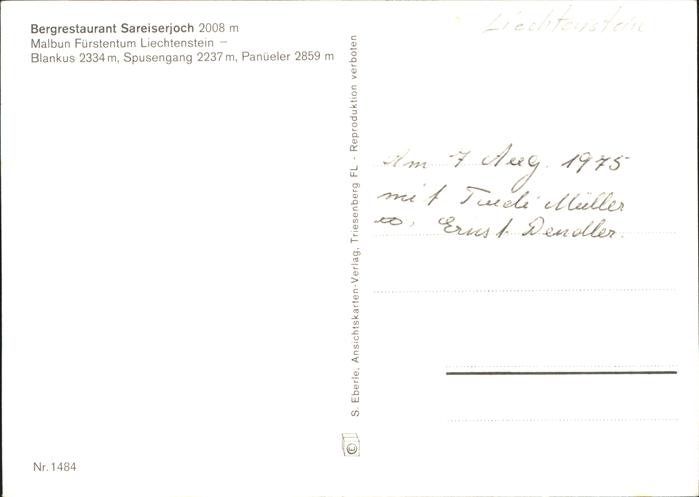 Bergrestaurant Sareiserjoch 2008 m
Malbun Fürstentum Liechtenstein –
Blankus 2334 m, Spusengang 2237 m, Panüeler 2859 m
Liechtenstein
Am 7 Aug. 1975
mit Trudi Müller
Ernst Dendler.
S. Eberle, Ansichtskarten-Verlag, Triesenberg FL - Reproduktion verboten
Nr. 1484